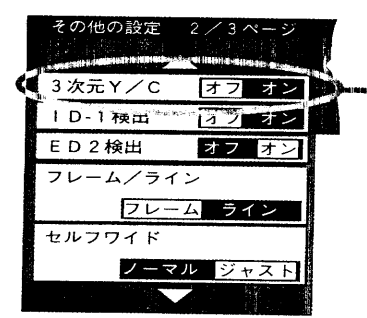 その他の設定 2/3ページ
3次元Y/C オフ オン
ID-1検出 オフ オン
ED2検出 オフ オン
フレーム/ライン
フレーム ライン
セルフワイド
ノーマル ジャスト